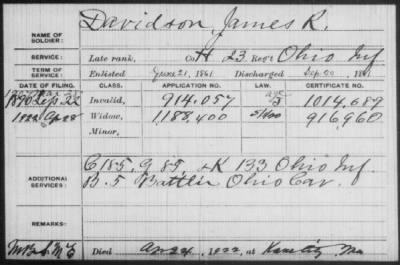 NAME OF SOLDIER: Davidson, James R.
SERVICE: Late rank, Co. H 23 Reg't Ohio Inf
TERM OF SERVICE: Enlisted June 21, 1861 Discharged Sep. 20, 1861
DATE OF FILING. CLASS. APPLICATION NO. LAW. CERTIFICATE NO.
1890 Sep. 22 Invalid, 914.057 1014.689
1922 Apr 28 Widow, 1188,400 916960
Minor,
C 185, G 85 + K 133 Ohio Inf.
ADDITIONAL SERVICES: B. 5 Battl'n Ohio Cav.
REMARKS:
Died Apr 24, 1922, at Kans City, Mo